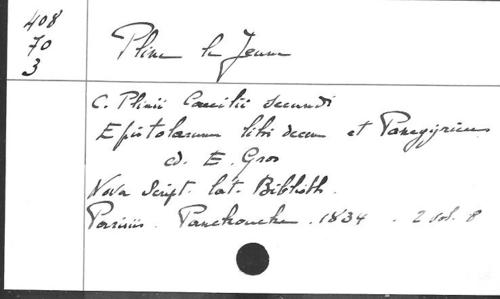 408
70
3
Pline le Jeune
C. Plinii Caecilii secundi
Epistolarum libri decem et Panegyricus
ed. E. Gros
Nova Script. lat. Biblioth.
Parisiis. Panckoucke. 1834. 2 vol. 8